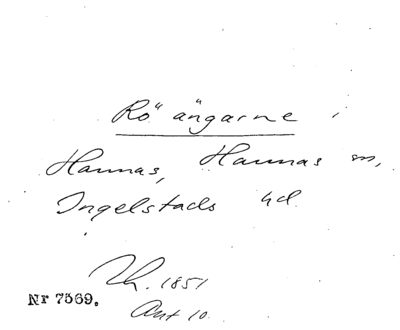 Rö" ängarne
Hannas, Hannas sn,
Ingelstads hd
Th. 1851
Nr 7569.
Ant 10